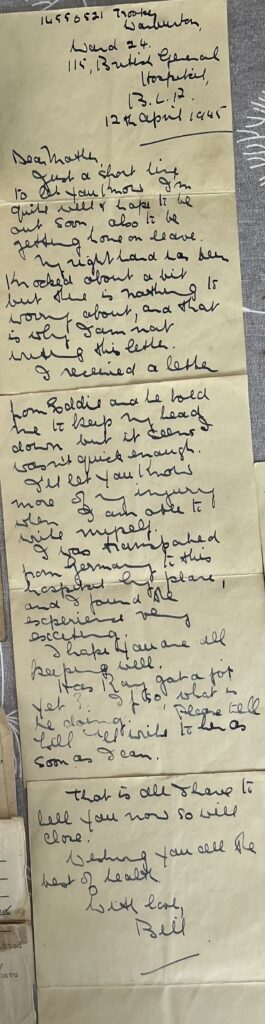 14550521 Trooper
Warburton,
Ward 24.
115, British General
Hospital,
B.L.A.
12th April 1945
Dear Mother,
Just a short line
to let you know I'm
quite well & hope to be
out soon also to be
getting home on leave.
My right hand has been
knocked about a bit
but there is nothing to
worry about, and that
is why I am not
writing this letter.
I received a letter
from Eddie and he told
me to keep my head
down but it seems I
wasn't quick enough.
I'll let you know
more of my injury
when I am able to
write myself.
I was transported
from Germany to this
hospital by plane,
and I found the
experience very
exciting.
I hope you are all
keeping well.
Has Ray got a job
yet? If so, what is
he doing. Please tell
I'll write to her as
soon as I can.
That is all I have to
tell you now so will
close.
Wishing you all the
best of health
With love,
Bill
itted
y
have